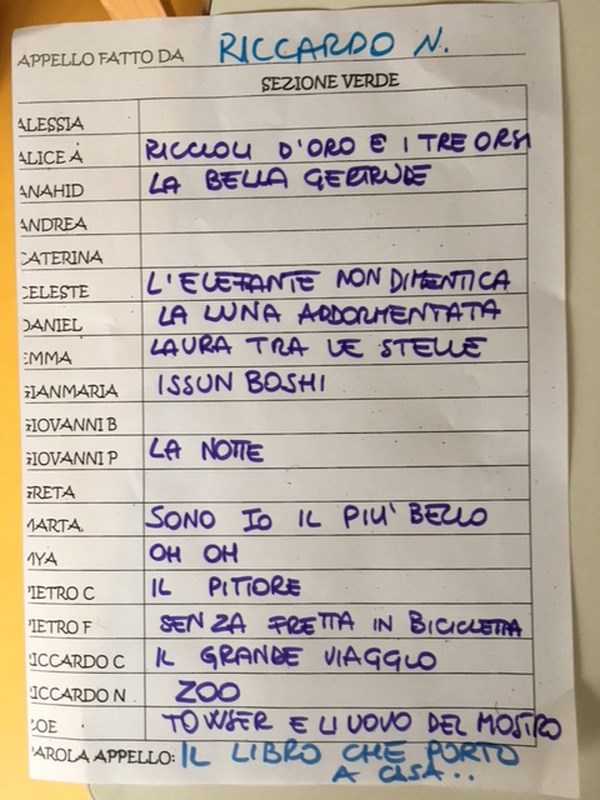 APPELLO FATTO DA RICCARDO N.
SEZIONE VERDE
ALESSIA
ALICE A RICCIOLI D'ORO E I TRE ORSI
ANAHID LA BELLA GERTRUDE
ANDREA
CATERINA
CELESTE L'ELEFANTE NON DIMENTICA
DANIEL LA LUNA ADDORMENTATA
EMMA LAURA TRA LE STELLE
GIANMARIA ISSUN BOSHI
GIOVANNI B
GIOVANNI P LA NOTTE
GRETA
MARTA SONO IO IL PIU' BELLO
MYA OH OH
PIETRO C IL PITTORE
PIETRO F SENZA FRETTA IN BICICLETTA
RICCARDO C IL GRANDE VIAGGIO
RICCARDO N ZOO
ZOE TOWSER E L'UOVO DEL MOSTRO
PAROLA APPELLO: IL LIBRO CHE PORTO
A CASA..